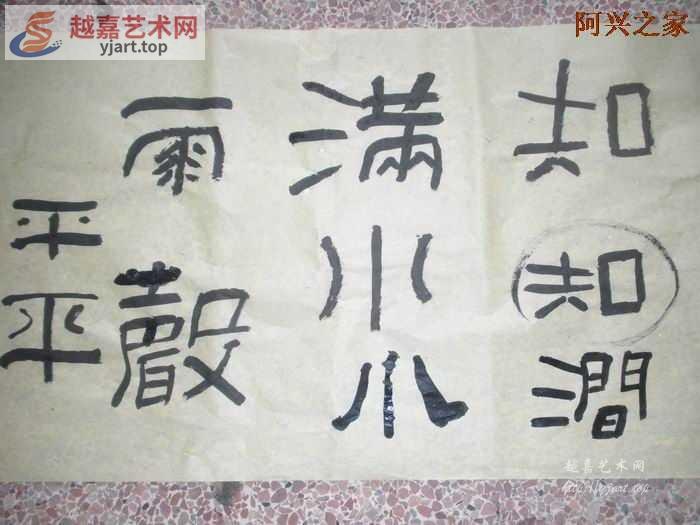 越嘉艺术网
yjart.top
阿兴之家
知知澗
滿小小
雨聲
平平
越嘉艺术网
http://yjart.top